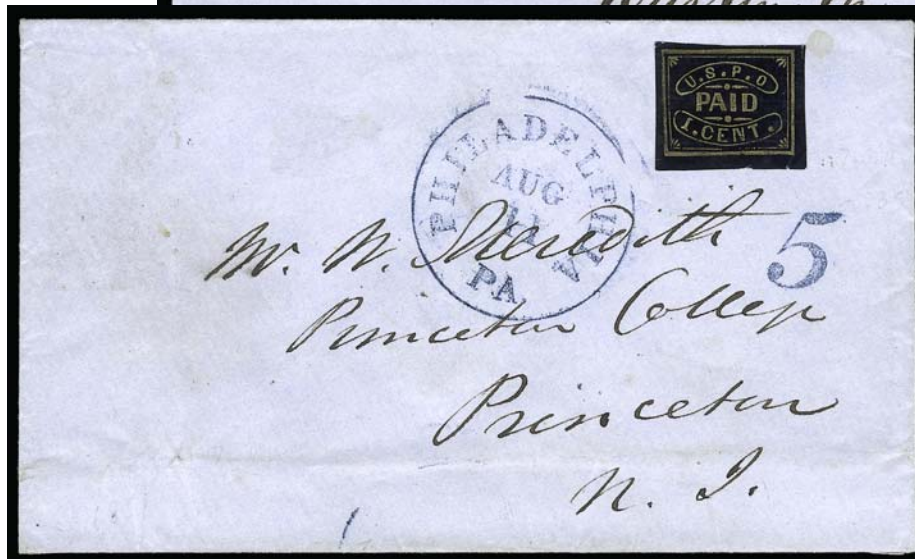 U.S.P.O
PAID
1.CENT.
PHILADELPHIA
AUG
11
PA
5
Mr. W. Meredith
Princeton College
Princeton
N. J.